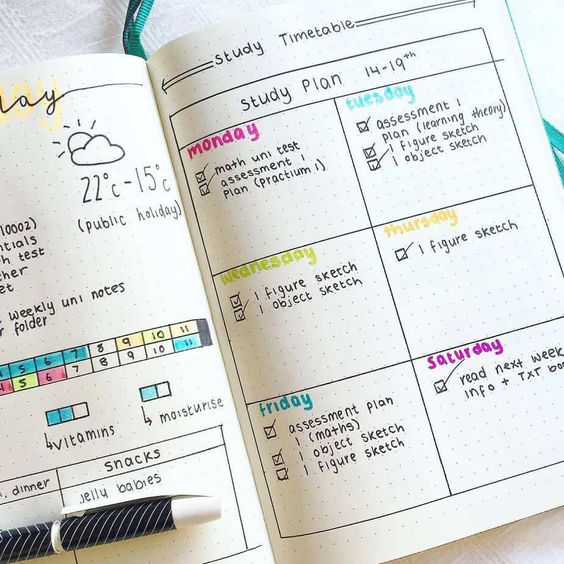 day
22°c-15°c
(public holiday)
10002)
weekly uni notes
folder
5 6 7 8 9 10 11
5 6 7 8 9 10 11
vitamins
moisturise
snacks
, dinner
jelly babies
Study Timetable
Study Plan 14-19th
monday
math uni test
assessment 1
plan (practium 1)
tuesday
assessment 1
plan (learning theory)
1 figure sketch
1 object sketch
wednesday
1 figure sketch
1 object sketch
thursday
1 figure sketch
friday
assessment plan
1 (maths)
1 object sketch
1 figure sketch
saturday
read next week
info + TXT